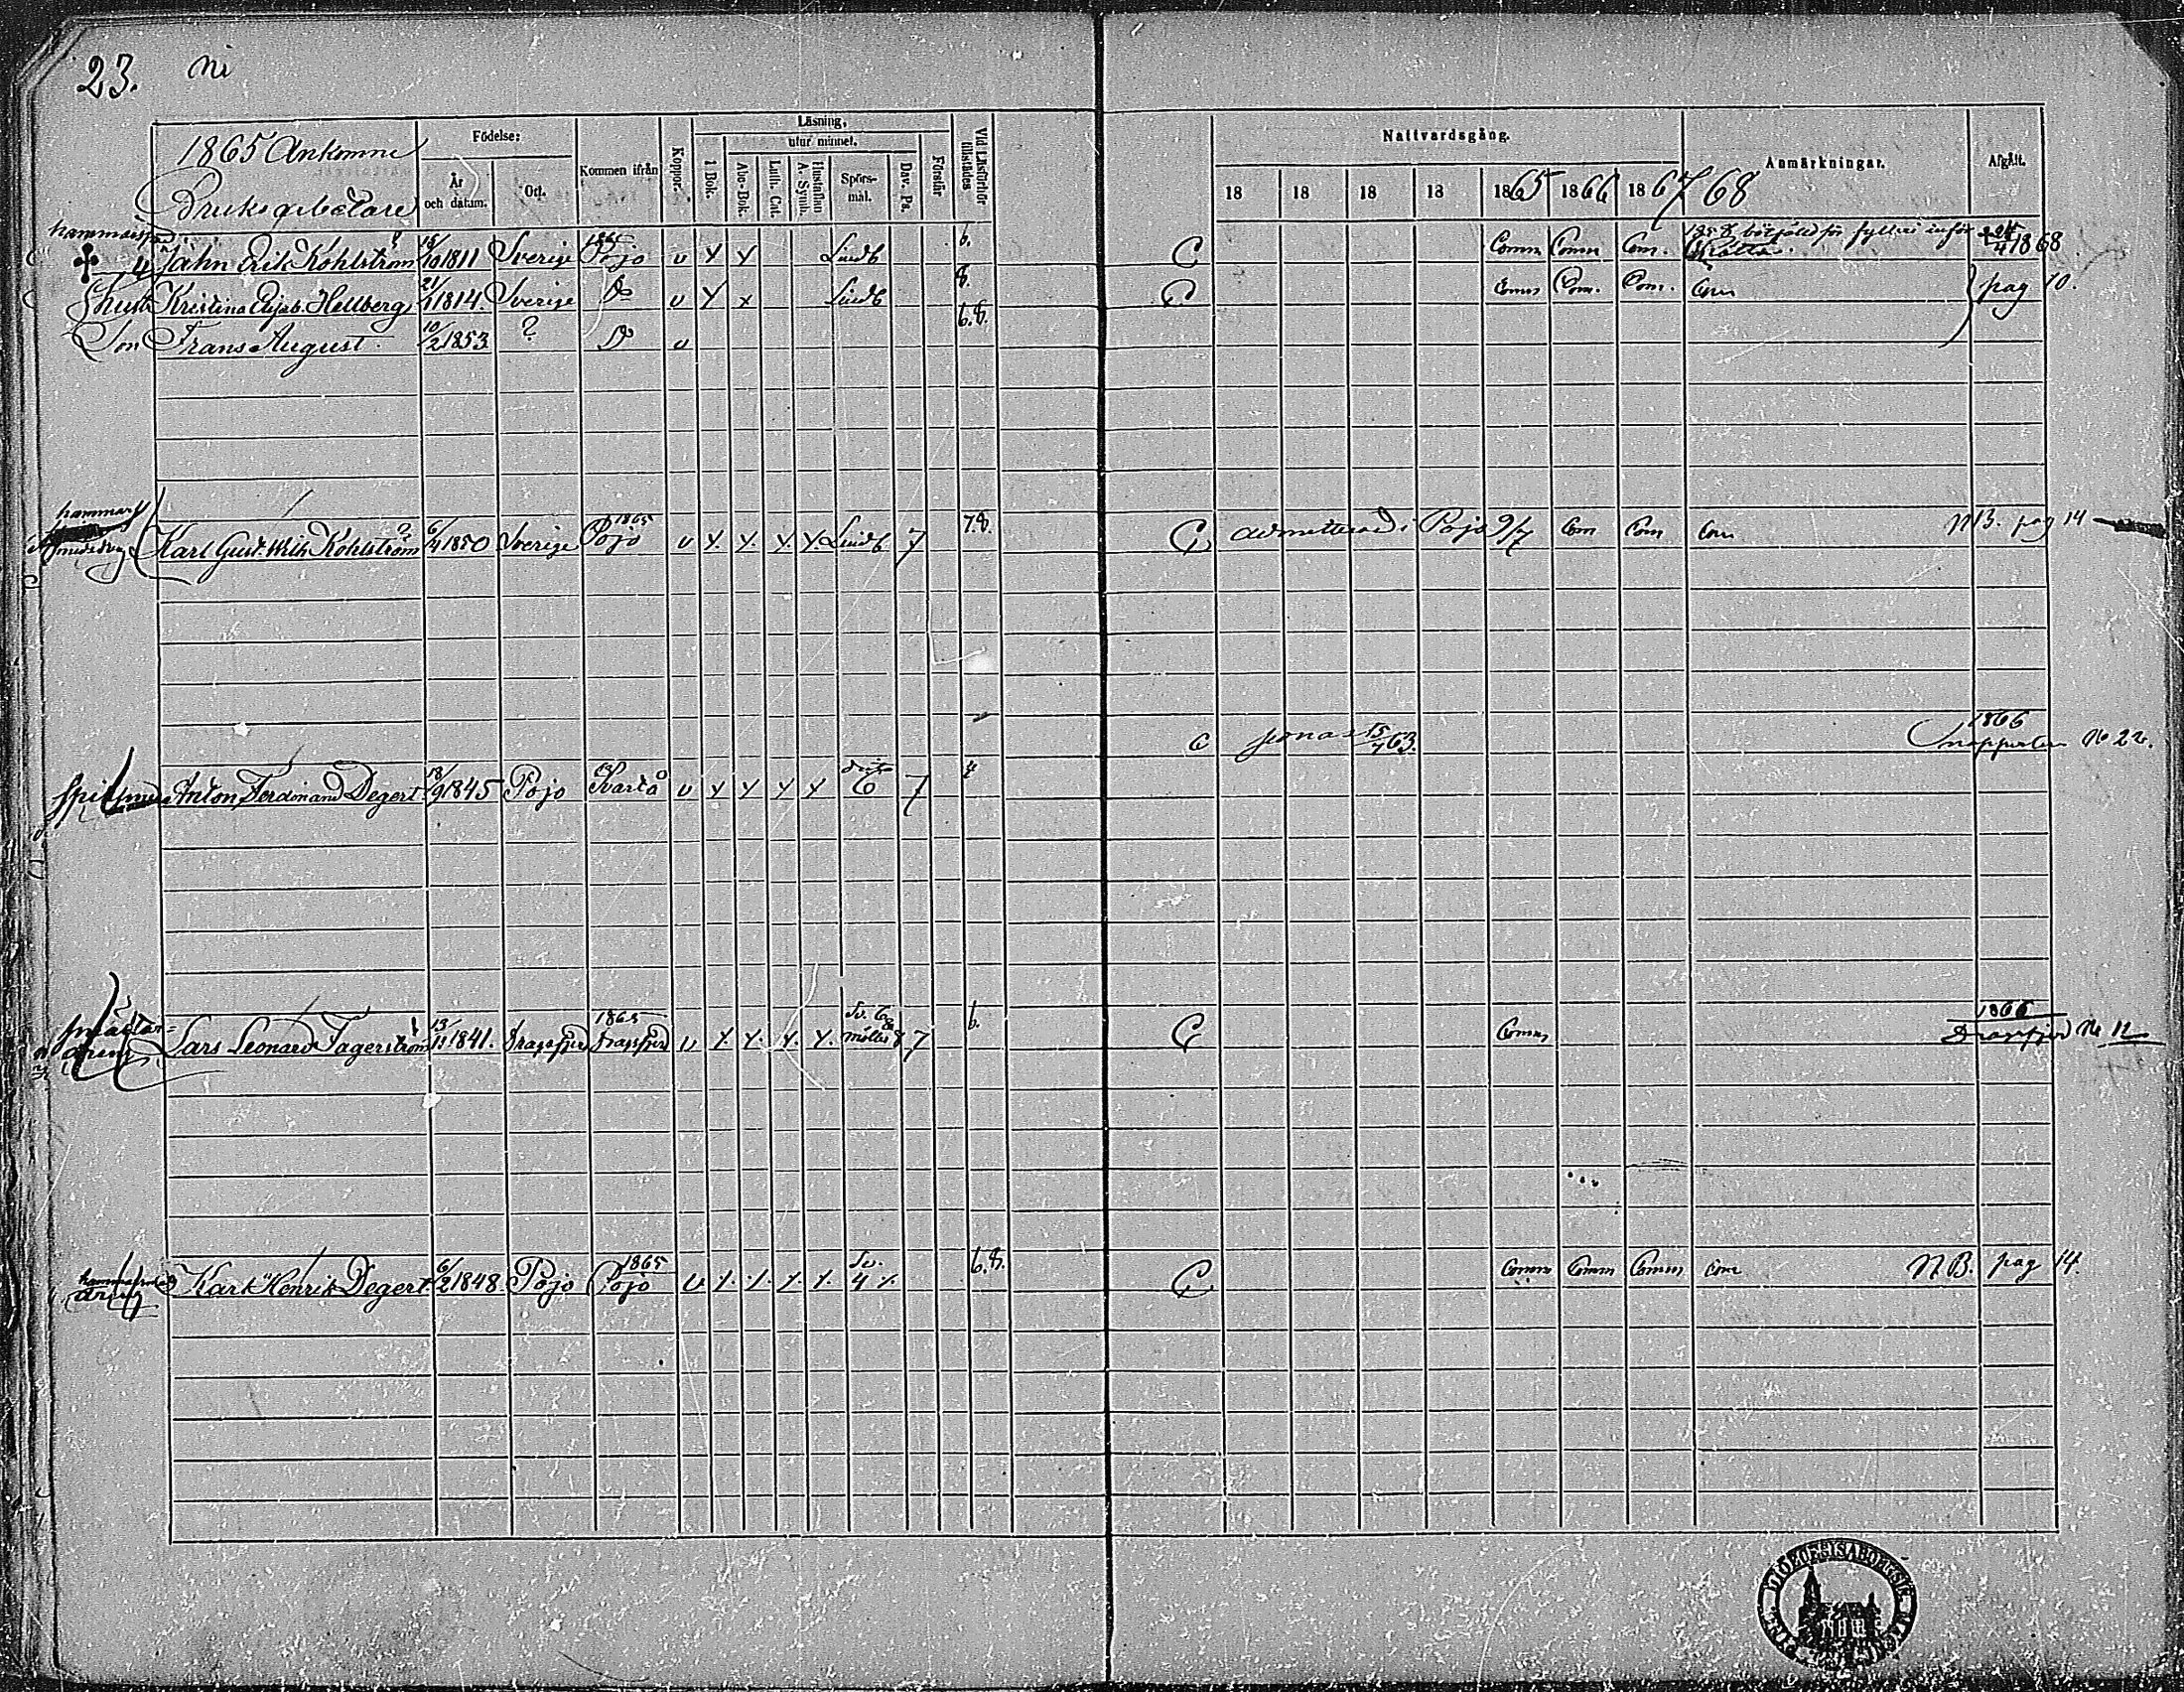 23.
1865 Ankomne
Bruksarbetare
Födelse:
År och datum.
Ort.
Kommen ifrån
Koppor.
Läsning,
utur minnet.
I Bok.
Abc-Bok.
Luth. Cat.
Hustaflan A. Symb.
Spörsmål.
Dav. Ps.
Förstår
Vid Läsförhör tillstädes
Nattvardsgång.
18 18 18 18 1865 1866 1867 68
Anmärkningar.
Afgått.
Jahn Erik Kohlström 15/10 1811 Sverige Pojo v Lindb 6. C Comm Comm Com. 1868
Hust Kristina Elisab. Hellberg 21/1 1814 Sverige Do v Lindb 8. C Comm Com. Com. Com pag 10.
Son Frans August 10/2 1853 ? Do v 6.8.
Karl Gust. Wilh Kohlström 6/4 1850 Sverige 1865 Pojo v Lindb 7 7.8. C admitterad i Pojo 9/7 Com Com Com NB. pag 14
Anton Ferdinand Degert 18/9 1845 Pojo Svartå v 6 7 4 C 15/7 63. 1866 No 22.
Lars Leonard Fagerström 13/11 1841. Dragsfjerd 1865 Dragsfjerd v Sv. 6 7 6. C Comm 1866 Dragsfjerd No 12
Karl Henrik Degert 6/2 1848. Pojo 1865 Pojo v Sv. 4 6.8. C Comm Comm Comm Com N.B. pag 14.